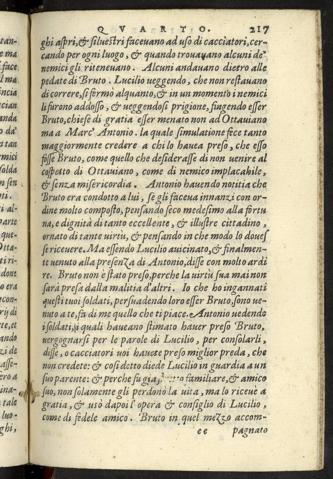 QVARTO. 217
ghi aspri, & siluestri faceuano ad uso di cacciatori, cer-
cando per ogni luogo, & quando trouauano alcuni de'
nemici gli riteneuano. Alcuni andauano dietro alle
pedate di Bruto. Lucilio ueggendo, che non restauano
di correre, si fermò alquanto, & in un momento i nemici
li furono addosso, & ueggendosi prigione, fingendo esser
Bruto, chiese di gratia esser menato non ad Ottauiano
ma a Marc' Antonio. la quale simulatione fece tanto
maggiormente credere a chi lo hauea preso, che esso
fosse Bruto, come quello che desiderasse di non uenire al
cospetto di Ottauiano, come di nemico implacabile,
& senza misericordia. Antonio hauendo notitia che
Bruto era condotto a lui, se gli faceua innanzi con or-
dine molto composto, pensando seco medesimo alla fortu
na, e dignità di tanto eccellente, & illustre cittadino,
ornato di tante uirtù, & pensando in che modo lo douess
si riceuere. Ma essendo Lucilio auicinato, & finalmen-
te uenuto alla presenza di Antonio, disse con molto ardi
re. Bruto non è stato preso, perche la uirtù sua mai non
sarà presa dalla malitia d'altri. Io che ho ingannati
questi tuoi soldati, persuadendo loro esser Bruto, sono ue-
nuto a te, fa di me quello che ti piace. Antonio uedendo
i soldati, i quali haueano stimato hauer preso Bruto,
uergognarsi per le parole di Lucilio, per consolarli,
disse, o cacciatori uoi hauete preso miglior preda, che
non credete: & cosi detto diede Lucilio in guardia a un
suo parente: & perche fu già familiare, & amico
suo, non solamente gli perdonò la uita, ma lo riceuè a
gratia, & usò dapoi l'opera & consiglio di Lucilio,
come di fedele amico. Bruto in quel mezzo accom-
ee pagnato